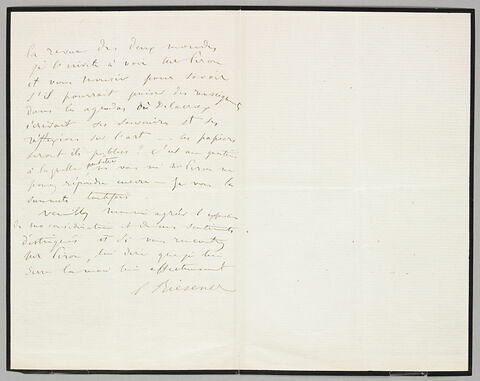 la revue des deux mondes
je l'invite à voir Mr Piron
et vous Monsieur pour savoir
s'il pourrait puiser des renseignements
dans les agendas où Delacroix
écrivait ses souvenirs et ses
réflexions sur l'art — ces papiers
seront ils publiés ? c'est une question
à laquelle peut-être ni vous ni Mr Piron ne
pouvez répondre encore — Je vous la
soumets toutefois
Veuillez Monsieur agréer l'expression
de ma considération et de mes sentiments
distingués et si vous rencontrez
Mr Piron, lui dire que je lui
serre la main bien affectueusement
L Riesener